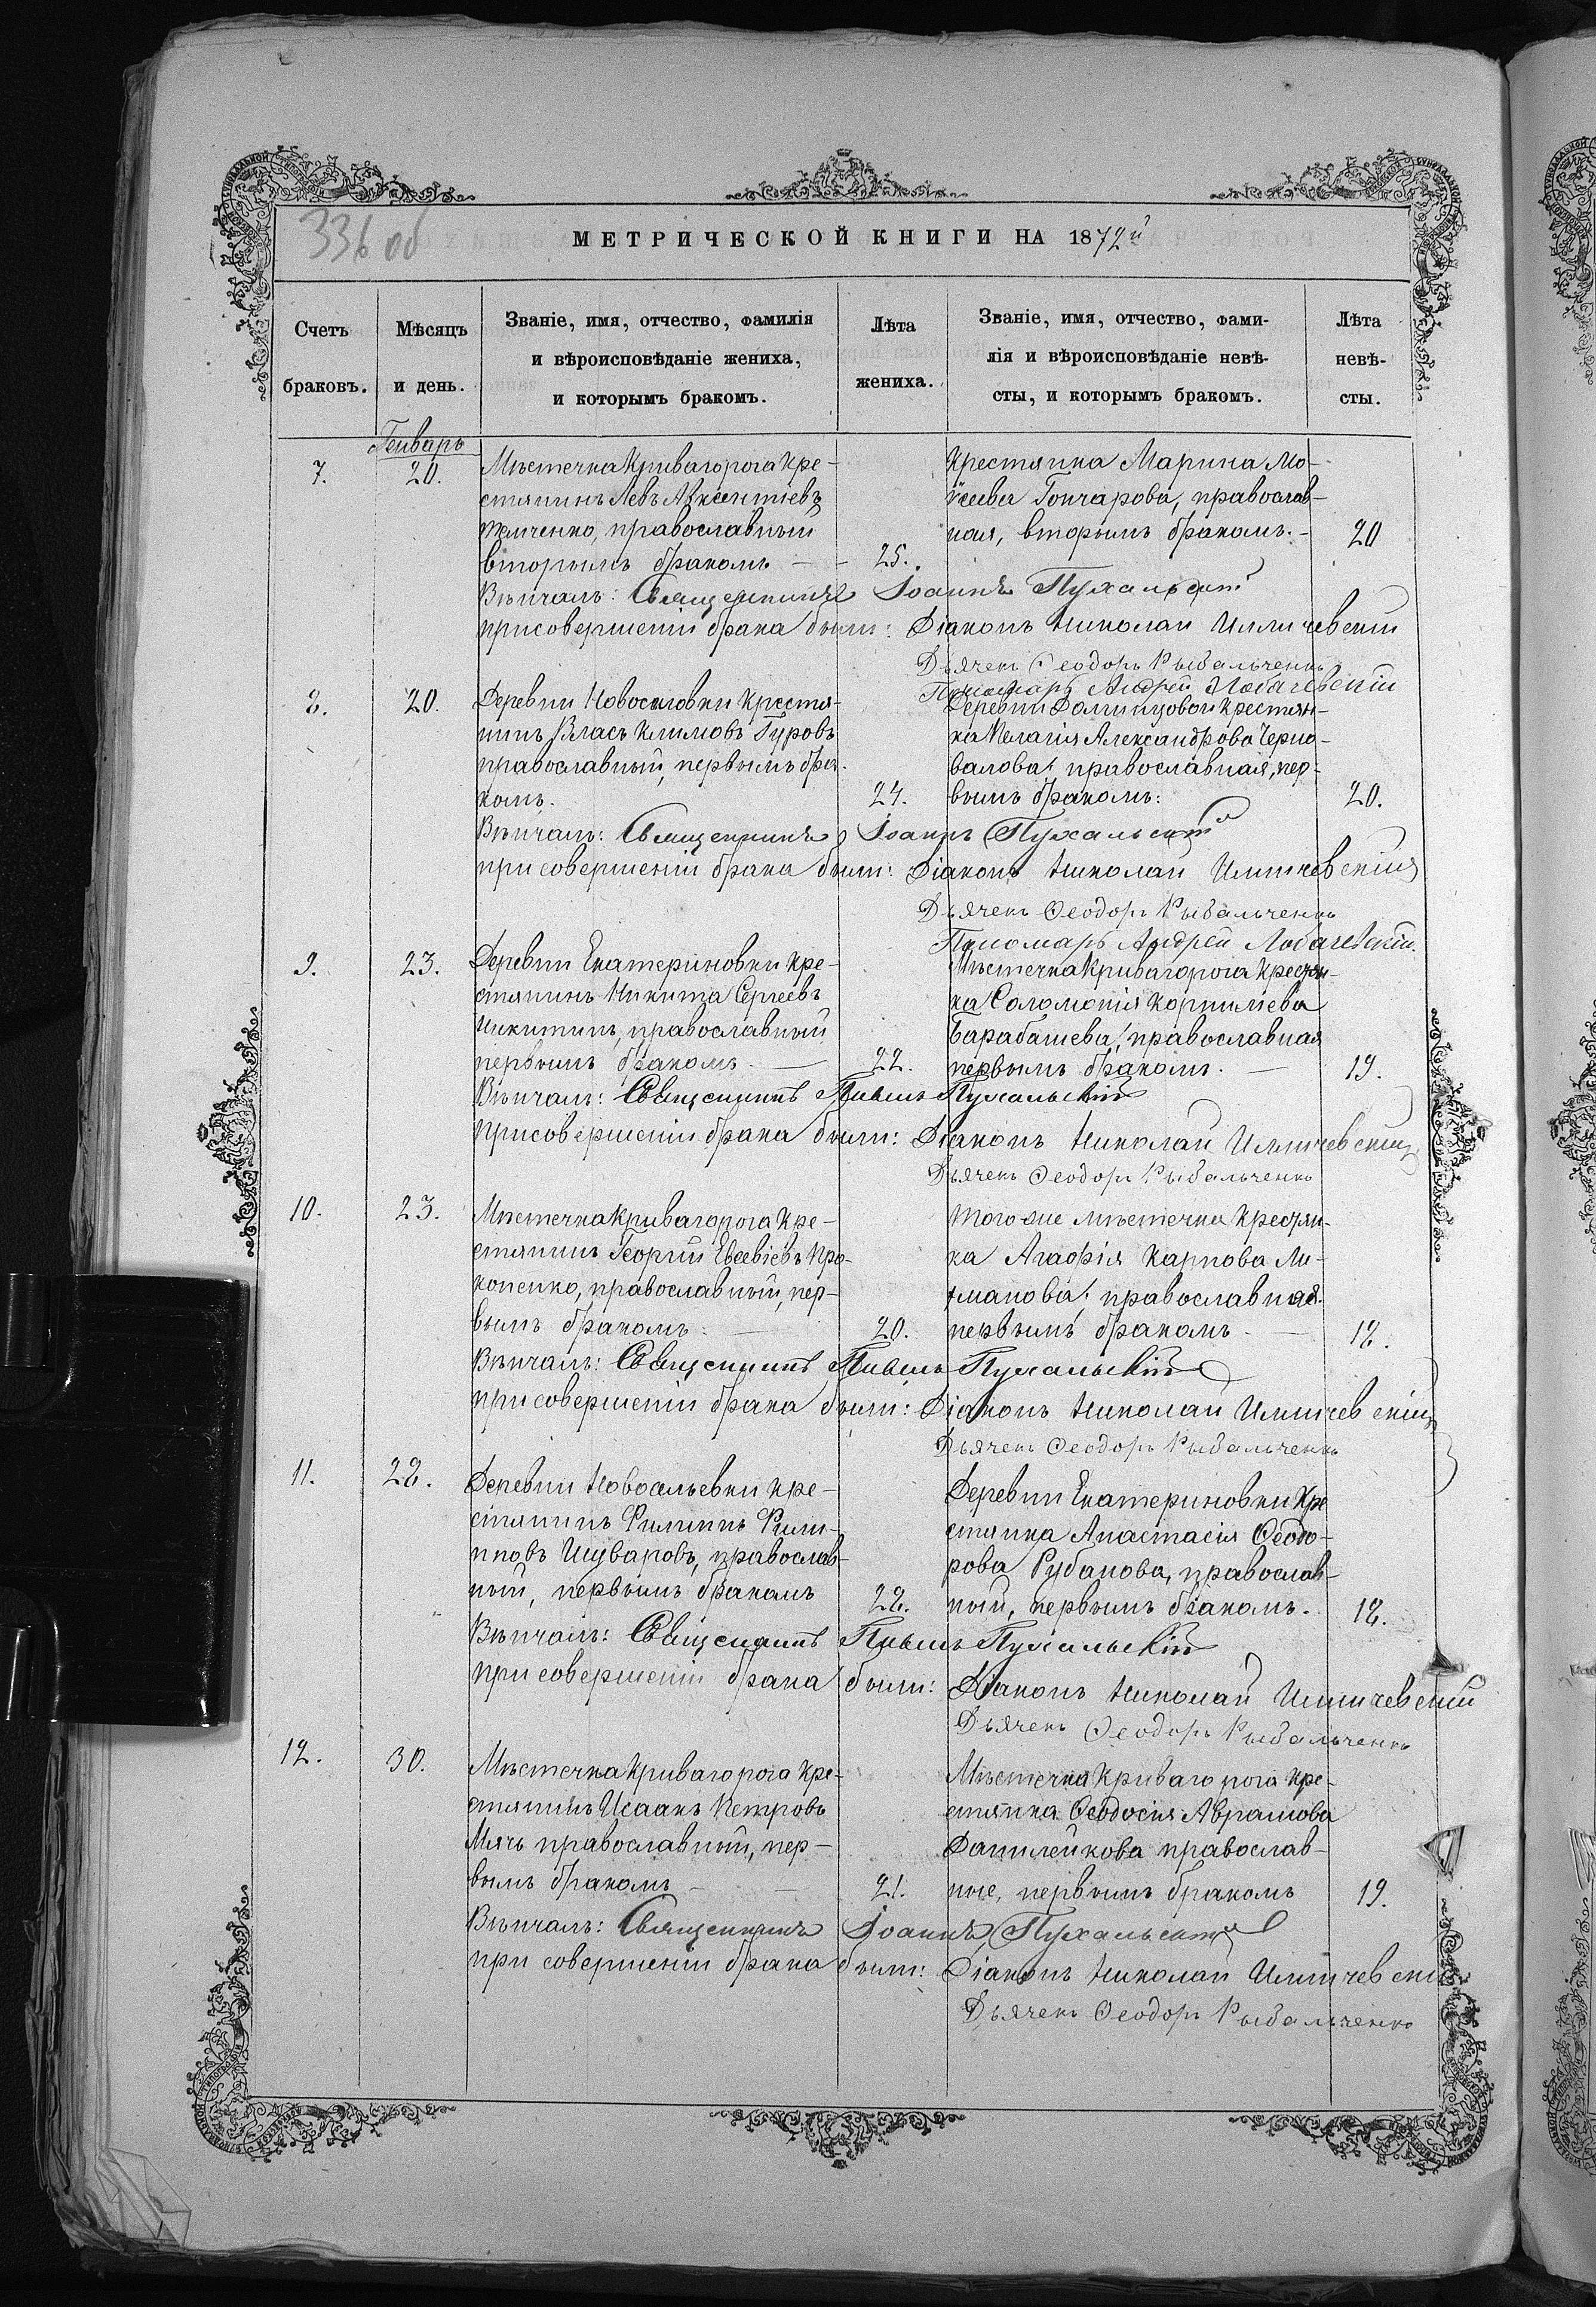 336 об
МЕТРИЧЕСКОЙ КНИГИ НА 1872й
Счетъ браковъ.
Мѣсяцъ и день.
Званіе, имя, отчество, фамилія
и вѣроисповѣданіе жениха,
и которымъ бракомъ.
Лѣта жениха.
Званіе, имя, отчество, фами-
лія и вѣроисповѣданіе невѣ-
сты, и которымъ бракомъ.
Лѣта невѣ-
сты.
Генварь
7. 20. Мѣстечка Криваго рога кре-
стянинъ Левъ Авксентіевъ
православный
вторымъ бракомъ 25.
крестянка Марина Мо-
исеева Гончарова, православ-
ная, вторымъ бракомъ. 20
Вѣнчалъ: Священникъ Іоаннъ Пухальскій
при совершеніи брака были: Діаконъ Николай Илличевскій
Дьячекъ Ѳеодоръ Рыбальченко
Пономарь Андрей Лобачевскій
8. 20. Деревни крестя-
нинъ Власъ Климовъ Гуровъ
православный, первымъ бра-
комъ. 24.
Деревни крестян-
ка Пелагія Александрова Черно-
валова, православная, пер-
вымъ бракомъ: 20.
Вѣнчалъ: Священникъ Іоаннъ Пухальскій
при совершеніи брака были: Діаконъ Николай Илличевскій
Дьячекъ Ѳеодоръ Рыбальченко
Пономарь Андрей Лобачевскій.
9. 23. Деревни Екатериновки кре-
стянинъ Никита Сергеевъ
Никитинъ, православный
первымъ бракомъ. 22.
Мѣстечка Криваго рога крестян-
ка Соломонія Корнилиева
Барабашева, православная
первымъ бракомъ. 19.
Вѣнчалъ: Священникъ Павелъ Пухальскій
при совершеніи брака были: Діаконъ Николай Илличевскій
Дьячекъ Ѳеодоръ Рыбальченко
10. 23. Мѣстечка Криваго рога кре-
стянинъ Георгій Евсевіевъ Про-
копенко, православный, пер-
вымъ бракомъ. 20.
Того же мѣстечка крестян-
ка Агафія Карпова Ли-
тманова, православная
первымъ бракомъ. 18.
Вѣнчалъ: Священникъ Павелъ Пухальскій
при совершеніи брака были: Діаконъ Николай Илличевскій
Дьячекъ Ѳеодоръ Рыбальченко
11. 28. Деревни кре-
стянинъ Филиппъ Фили-
пповъ Шуваровъ, православ-
ный, первымъ бракомъ 28.
Деревни Екатериновки кре
стянка Анастасія Ѳеодо-
рова Рубанова, православ-
ный, первымъ бракомъ. 18.
Вѣнчалъ: Священникъ Павелъ Пухальскій
при совершеніи брака были: Діаконъ Николай Илличевскій
Дьячекъ Ѳеодоръ Рыбальченко
12. 30. Мѣстечка Криваго рога кре-
стянинъ Исаакъ Петровъ
Мячъ православный, пер-
вымъ бракомъ 21.
Мѣстечка Криваго рога кре-
стянка Ѳеодосія Аврамова
Данилейкова православ-
ные, первымъ бракомъ 19.
Вѣнчалъ: Священникъ Іоаннъ Пухальскій
при совершеніи брака были: Діаконъ Николай Илличевскій
Дьячекъ Ѳеодоръ Рыбальченко